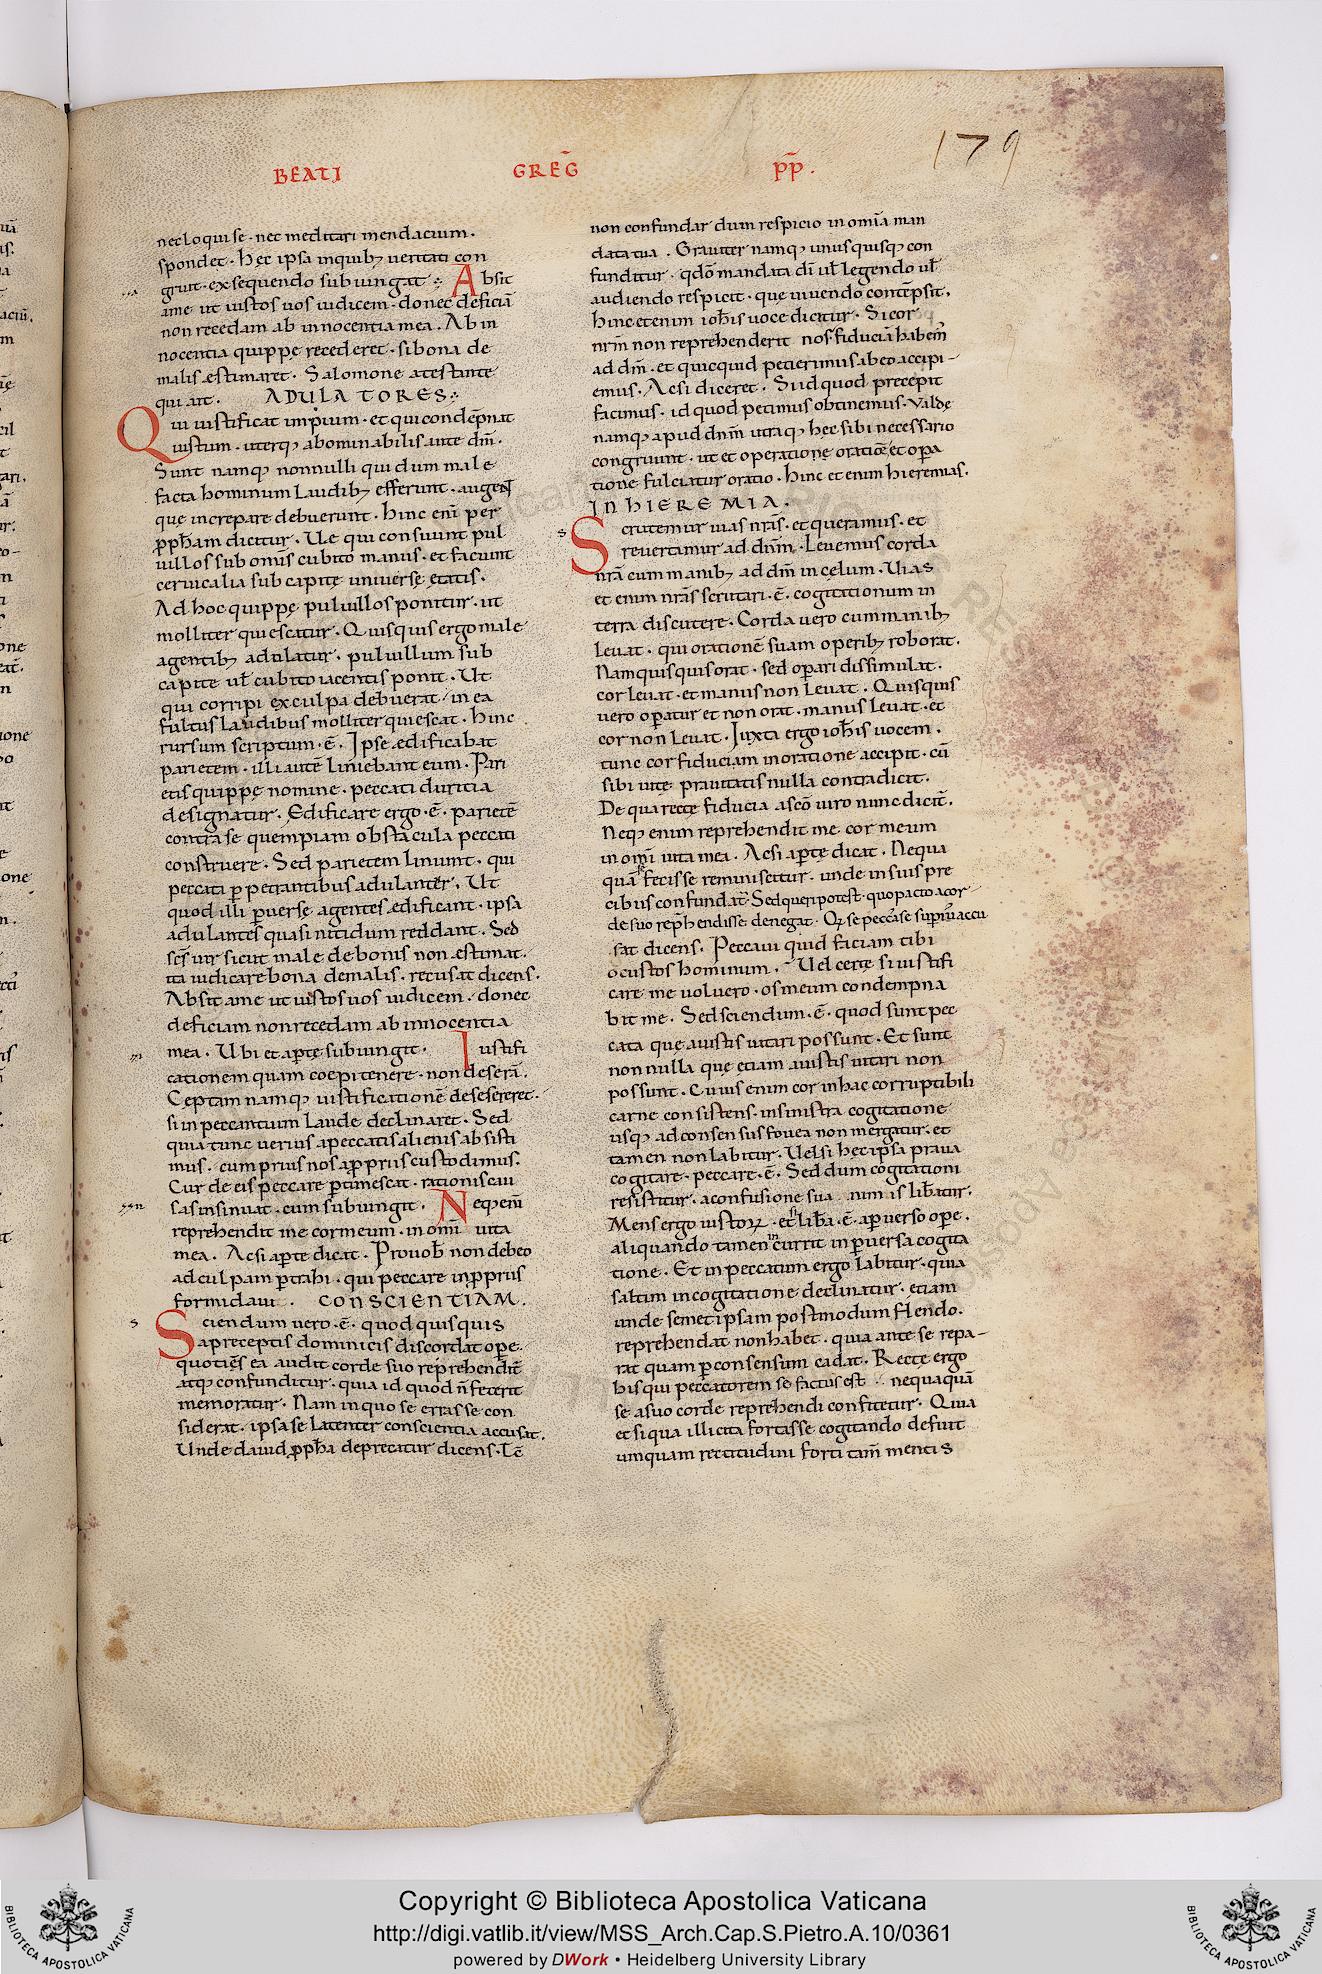 179
BEATI GREḠ PP̄.
nec loqui se · nec meditari mendacium .
spondet · Hęc ipsa in quibꝫ veritati con
gruit · exsequendo subiungit : Absit
a me ut iustos uos iudicem · donec deficiā
non recedam ab innocentia mea . Ab in
nocentia quippe recederet · si bona de
malis estimaret . Salomone atestante
qui ait . ADULATORES :
Qui iustificat impium · et qui condēpnat
iustum · uterqꝫ abominabilis ante dm̄ .
Sunt namqꝫ nonnulli qui dum male
facta hominum laudibꝫ efferunt · augent
que increpare debuerunt . hinc eni per
ꝓph̄am dicitur . Ue qui consuunt pul
uillos sub omīs cubito manus · et faciunt
ceruicalia sub capite universę etatis .
Ad hoc quippe puluillos ponitur · ut
molliter quiescatur . Quisquis ergo male
agentibꝫ adulatur · puluillum sub
capite ul̄ cubito iacentis ponit . Ut
qui corripi ex culpa debuerat / in ea
fultus laudibus molliter quiescat . hinc
rursum scriptum · ē . Ipse ędificabat
parietem · illi autē liniebant eum . Pari
etis quippe nomine · peccati duritia
designatur . Ędificare ergo · ē · parietē
contra se quempiam obstacula peccati
construere . Sed parietem liniunt · qui
peccata ꝑpetrantibus adulantur . Ut
quod illi ꝑuerse agentes ędificant · ipsi
adulantes quasi nitidum reddant . Sed
sc̄s uir sicut male de bonis non estimat ·
ita iudicare bona de malis · recusat dicens .
Absit a me ut iustos uos iudicem · donec
deficiam non recedam ab innocentia
mea . Ubi et aꝑte subiungit . Iustifi
cationem quam coepi tenere · non deserā .
Ceptam namqꝫ iustificationē desesereret ·
si in peccantium laude declinaret . Sed
quia tunc uerius a peccatis alienis absisti
mus · cum prius nos a ꝓpriis custodimus .
Cur de eis peccare ꝑtimescat · rationis cau
sas insinuat · cum subiungit . Neqꝫ eni
reprehendit me cor meum · in omi uita
mea . Ac si aꝑte dicat . Pro uob̄ non debeo
ad culpam ꝑtrahi · qui peccare in ꝓpriis
formidaui . CONSCIENTIAM .
Sciendum uero · ē · quod quisquis
a preceptis dominicis discordat oꝑe ·
quotiēs ea audit corde suo reprehenditur
atqꝫ confunditur · quia id quod n̄ fecerit
memoratur . Nam in quo se errasse con
siderat · ipsa se latenter conscientia accusat .
Unde dauid ꝓph̄a deprecatur dicens . Tc̄
non confundar dum respicio in omia man
data tua . Grauiter namqꝫ unusquisqꝫ con
funditur · qdō mandata dī ul̄ legendo ul̄
audiendo respicit · que uiuendo contempsit .
hinc etenim ioh̄is uoce dicitur . Si cor
nr̄m non reprehenderit nos fiduciā habem̄
ad dm̄ · et quicquid petierimus ab eo accipi-
emus . Ac si diceret . Si id quod precepit
facimus · id quod petimus obtinemus . Valde
namqꝫ apud dnm̄ utraqꝫ hec sibi necessario
congruunt · ut et operatione oratio et oꝑa
tione fulciatur oratio . hinc et enim hieremias .
IN HIEREMIA .
Scrutemur uias nrās · et queramus · et
reuertamur ad dnm̄ . Leuemus corda
nrā cum manibꝫ ad dm̄ in celum . Uias
et enim nrās scrutari · ē · cogitationum in
terra discutere . Corda uero cum manibꝫ
leuat · qui orationē suam operibꝫ roborat .
Nam quisquis orat · sed oꝑari dissimulat ·
cor leuat · et manus non leuat . Quisquis
uero oꝑatur et non orat · manus leuat · et
cor non leuat . Iuxta ergo ioh̄is uocem .
tunc cor fiduciam in oratione accipit · cū
sibi uitę prauitatis nulla contradicit .
De qua recte fiducia a scō uiro nunc dicit̄ .
Neqꝫ enim reprehendit me cor meum
in omī uita mea . Ac si aꝑte dicat . Nequa
quā fecisse reminiscitur · unde in suis pre
cibus confundat̄ . Sed queri potest quo pacto a cor
de suo rep̄hendisse denegat . Qꝫ se peccasse superius accu
sat dicens . Peccaui quid faciam tibi
o custos hominum . Uel certe si iustifi
care me uoluero · os meum condempna
bit me . Sed sciendum · ē · quod sunt pec
cata que a iustis uitari possunt . Et sunt
non nulla que etiam a iustis uitari non
possunt . Cuius enim cor in hac corruptibili
carne consistens · in sinistra cogitatione
usqꝫ ad consensus fouea non mergatur · et
tamen non labitur . Uel si hęc ipsa praua
cogitare · peccare · ē . Sed dum cogitationi
resistitur · a confusione sua nim is libatur .
Mens ergo iustoꝝ · et̄ liba · ē · a ꝑuerso oꝑe ·
aliquando tamen incurrit in ꝑuersa cogita
tione . Et in peccatum ergo labitur · quia
saltim in cogitatione declinatur · etiam
unde semet ipsam postmodum flendo .
reprehendat non habet · quia ante se repa-
rat quam ꝑ consensum cadat . Recte ergo
his qui peccatorem se factus est · nequaquā
se a suo corde reprehendi confitetur . Quia
et si qua illicita fortasse cogitando defuit
umquam rectitudini forti tam̄ mentis
Copyright © Biblioteca Apostolica Vaticana
http://digi.vatlib.it/view/MSS_Arch.Cap.S.Pietro.A.10/0361
powered by DWork • Heidelberg University Library
BIBLIOTECA APOSTOLICA VATICANA
BIBLIOTECA APOSTOLICA VATICANA